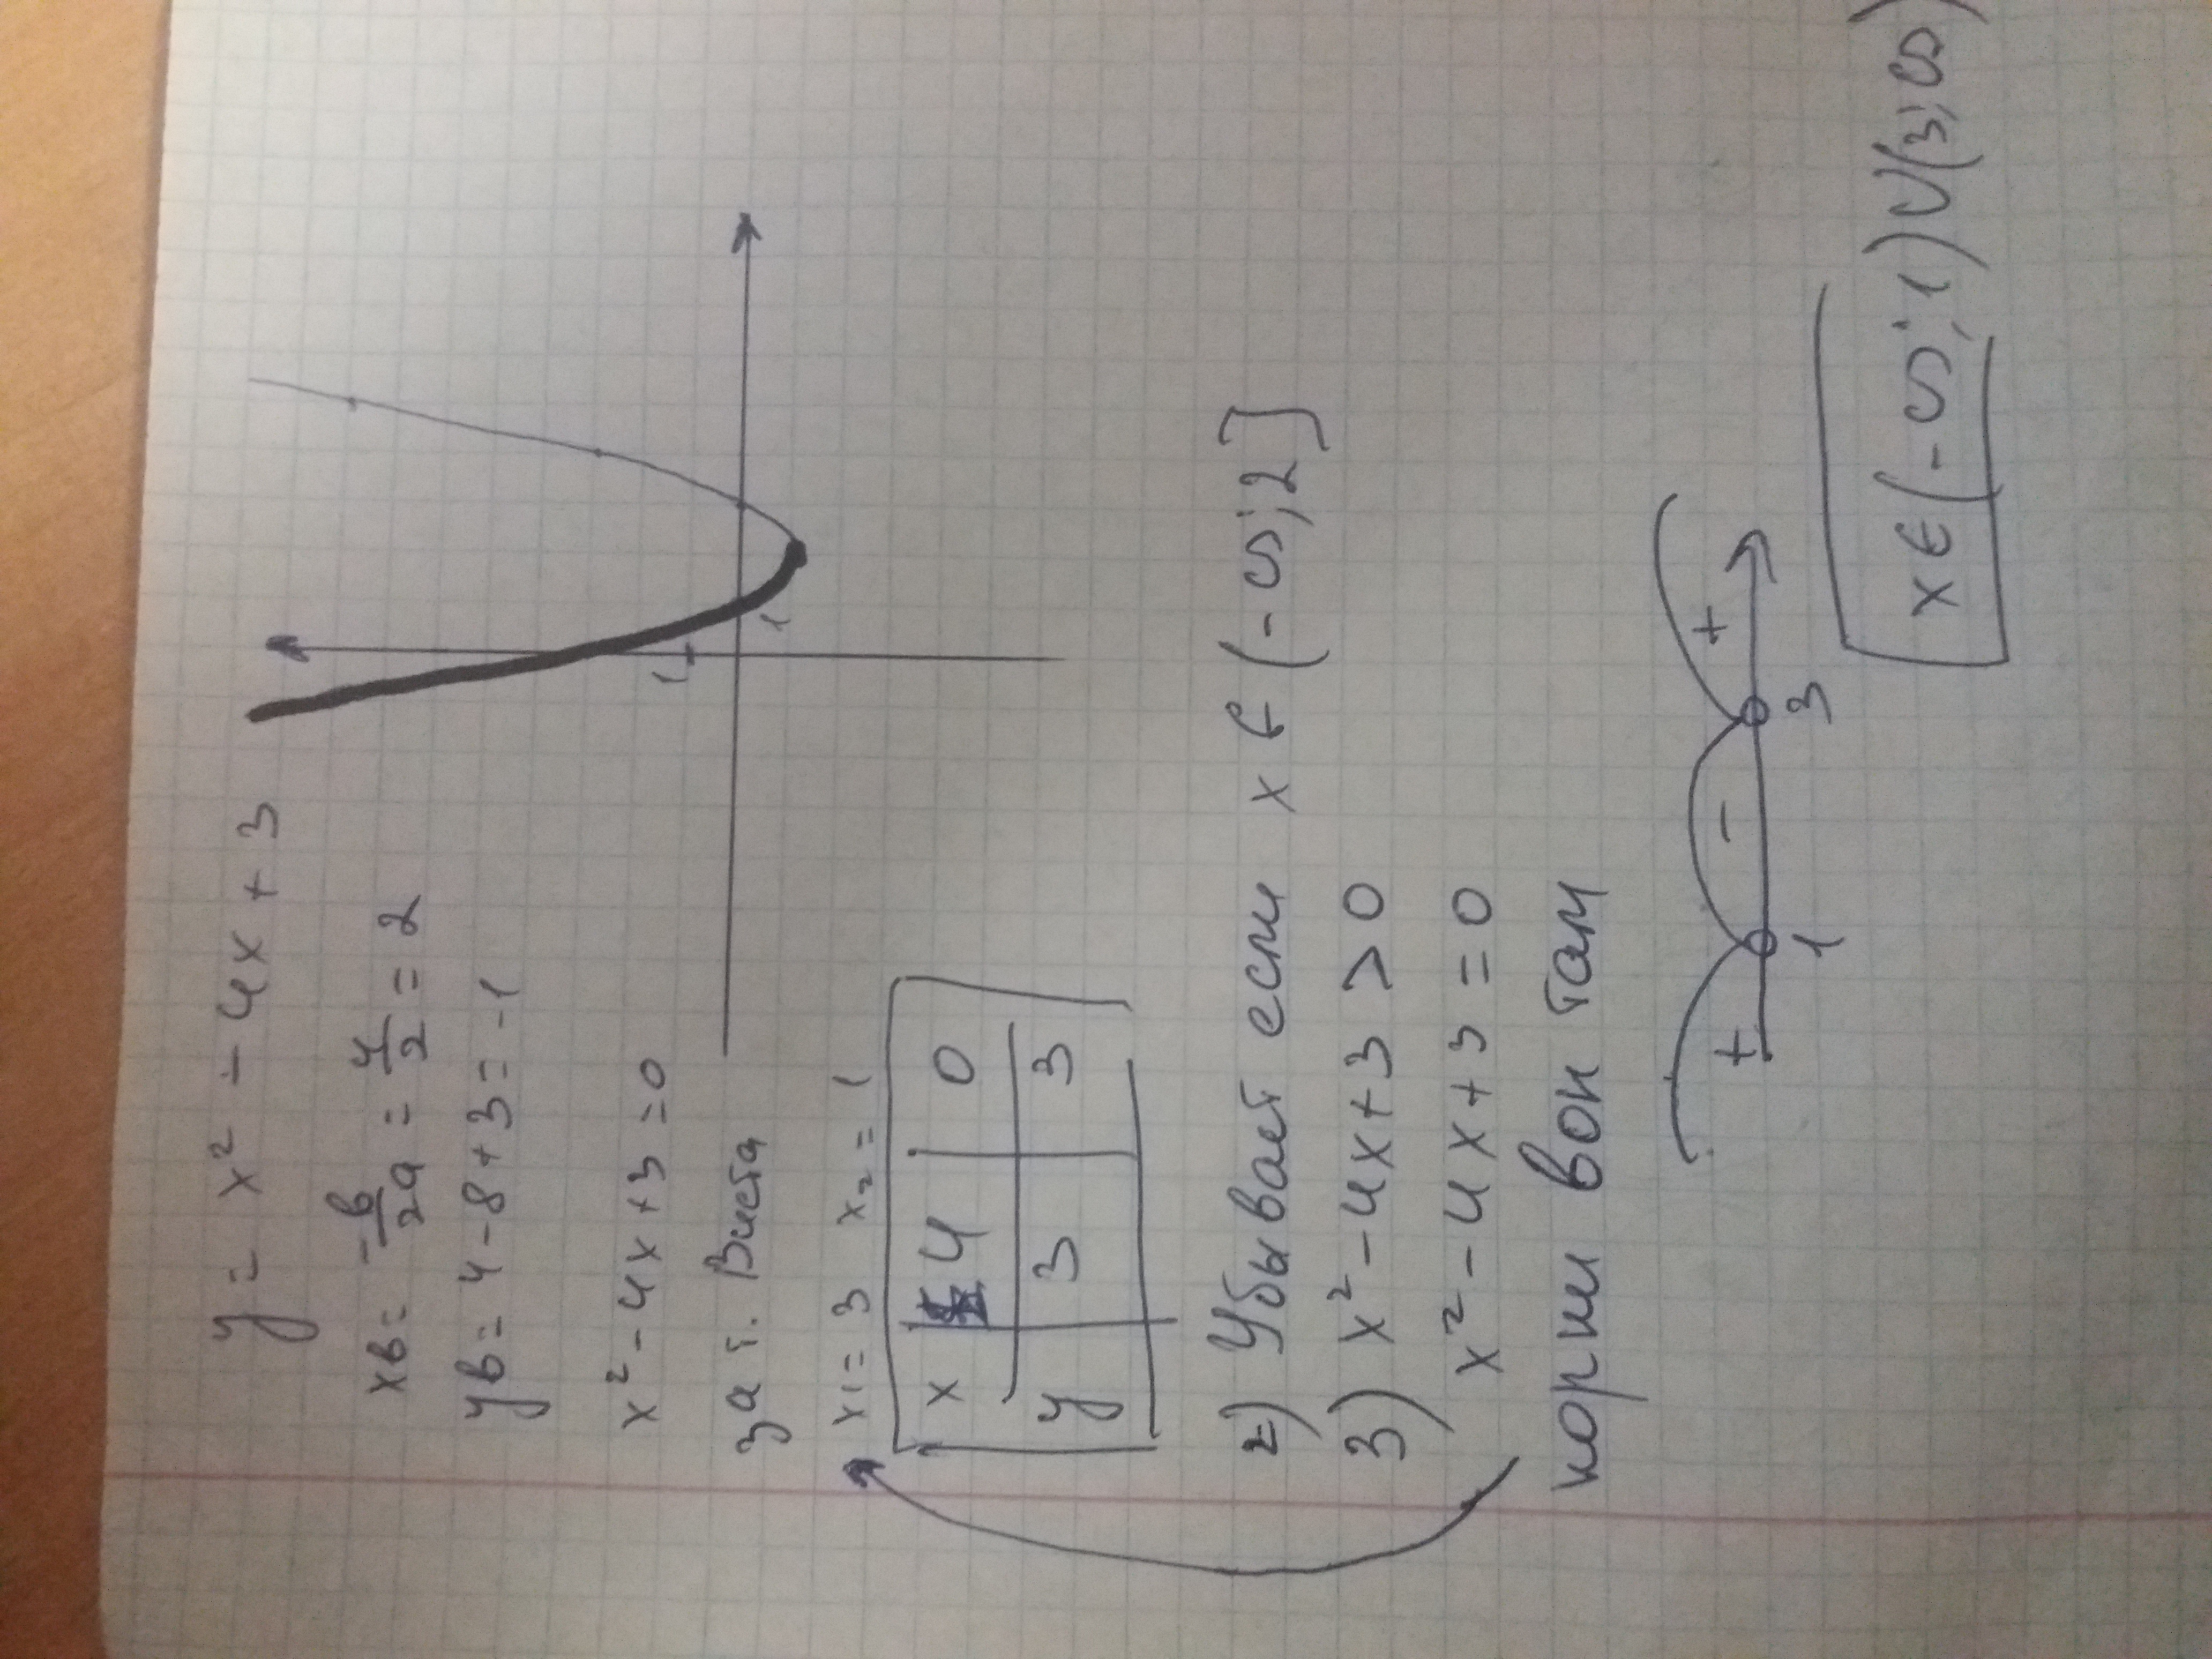 y = x² - 4x + 3
xв = -в/2a = 4/2 = 2
yв = 4 - 8 + 3 = -1
x² - 4x + 3 = 0
за т. Виета
x₁ = 3 x₂ = 1
x 4 0
y 3 3
1
1
2) Убывает если x ∈ (-∞; 2]
3) x² - 4x + 3 > 0
x² - 4x + 3 = 0
корни вон там
+ - +
1 3
x ∈ (-∞; 1) ∪ (3; ∞)